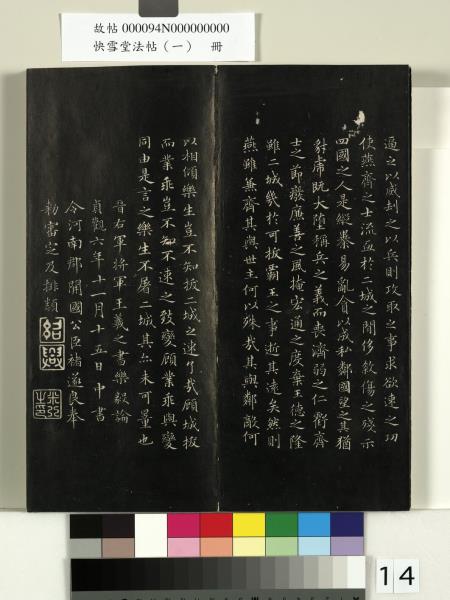 故帖 000094N000000000
快雪堂法帖（一） 冊
逼之以威刦之以兵則攻取之事求欲速之功
使燕齊之士流血於二城之閒侈敘傷之殘示
四國之人是縱暴易亂貪以成私鄰國望之其猶
豺虎既大墮稱兵之義而喪濟弱之仁虧齊
士之節廢廉善之風掩宏通之度棄王德之隆
雖二城幾於可拔霸王之事逝其遠矣然則
燕雖兼齊其與世主何以殊哉其與鄰敵何
以相傾樂生豈不知拔二城之速了哉顧城拔
而業乖豈不知不速之致變顧業乖與變
同由是言之樂生不屠二城其亦未可量也
晉右軍將軍王羲之書樂毅論
貞觀六年十一月十五日中書
令河南郡開國公臣褚遂良奉
勅審定及排類
紹興
14